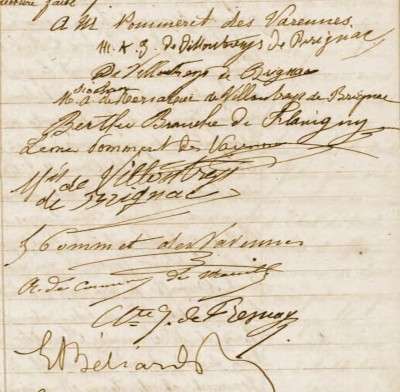 lecture faite
A M Pommeret des Varennes
M. A. J. de Villoutreys de Brignac
De Villoutreys de Brignac
M. A. de de Villoutreys de Brignac
Berthe Branche de Flavigny
Pommeret des Varennes
Mis de Villoutreys
de Brignac
Pommeret des Varennes
A. de de
Cte J. de Fresnay
E Béliard